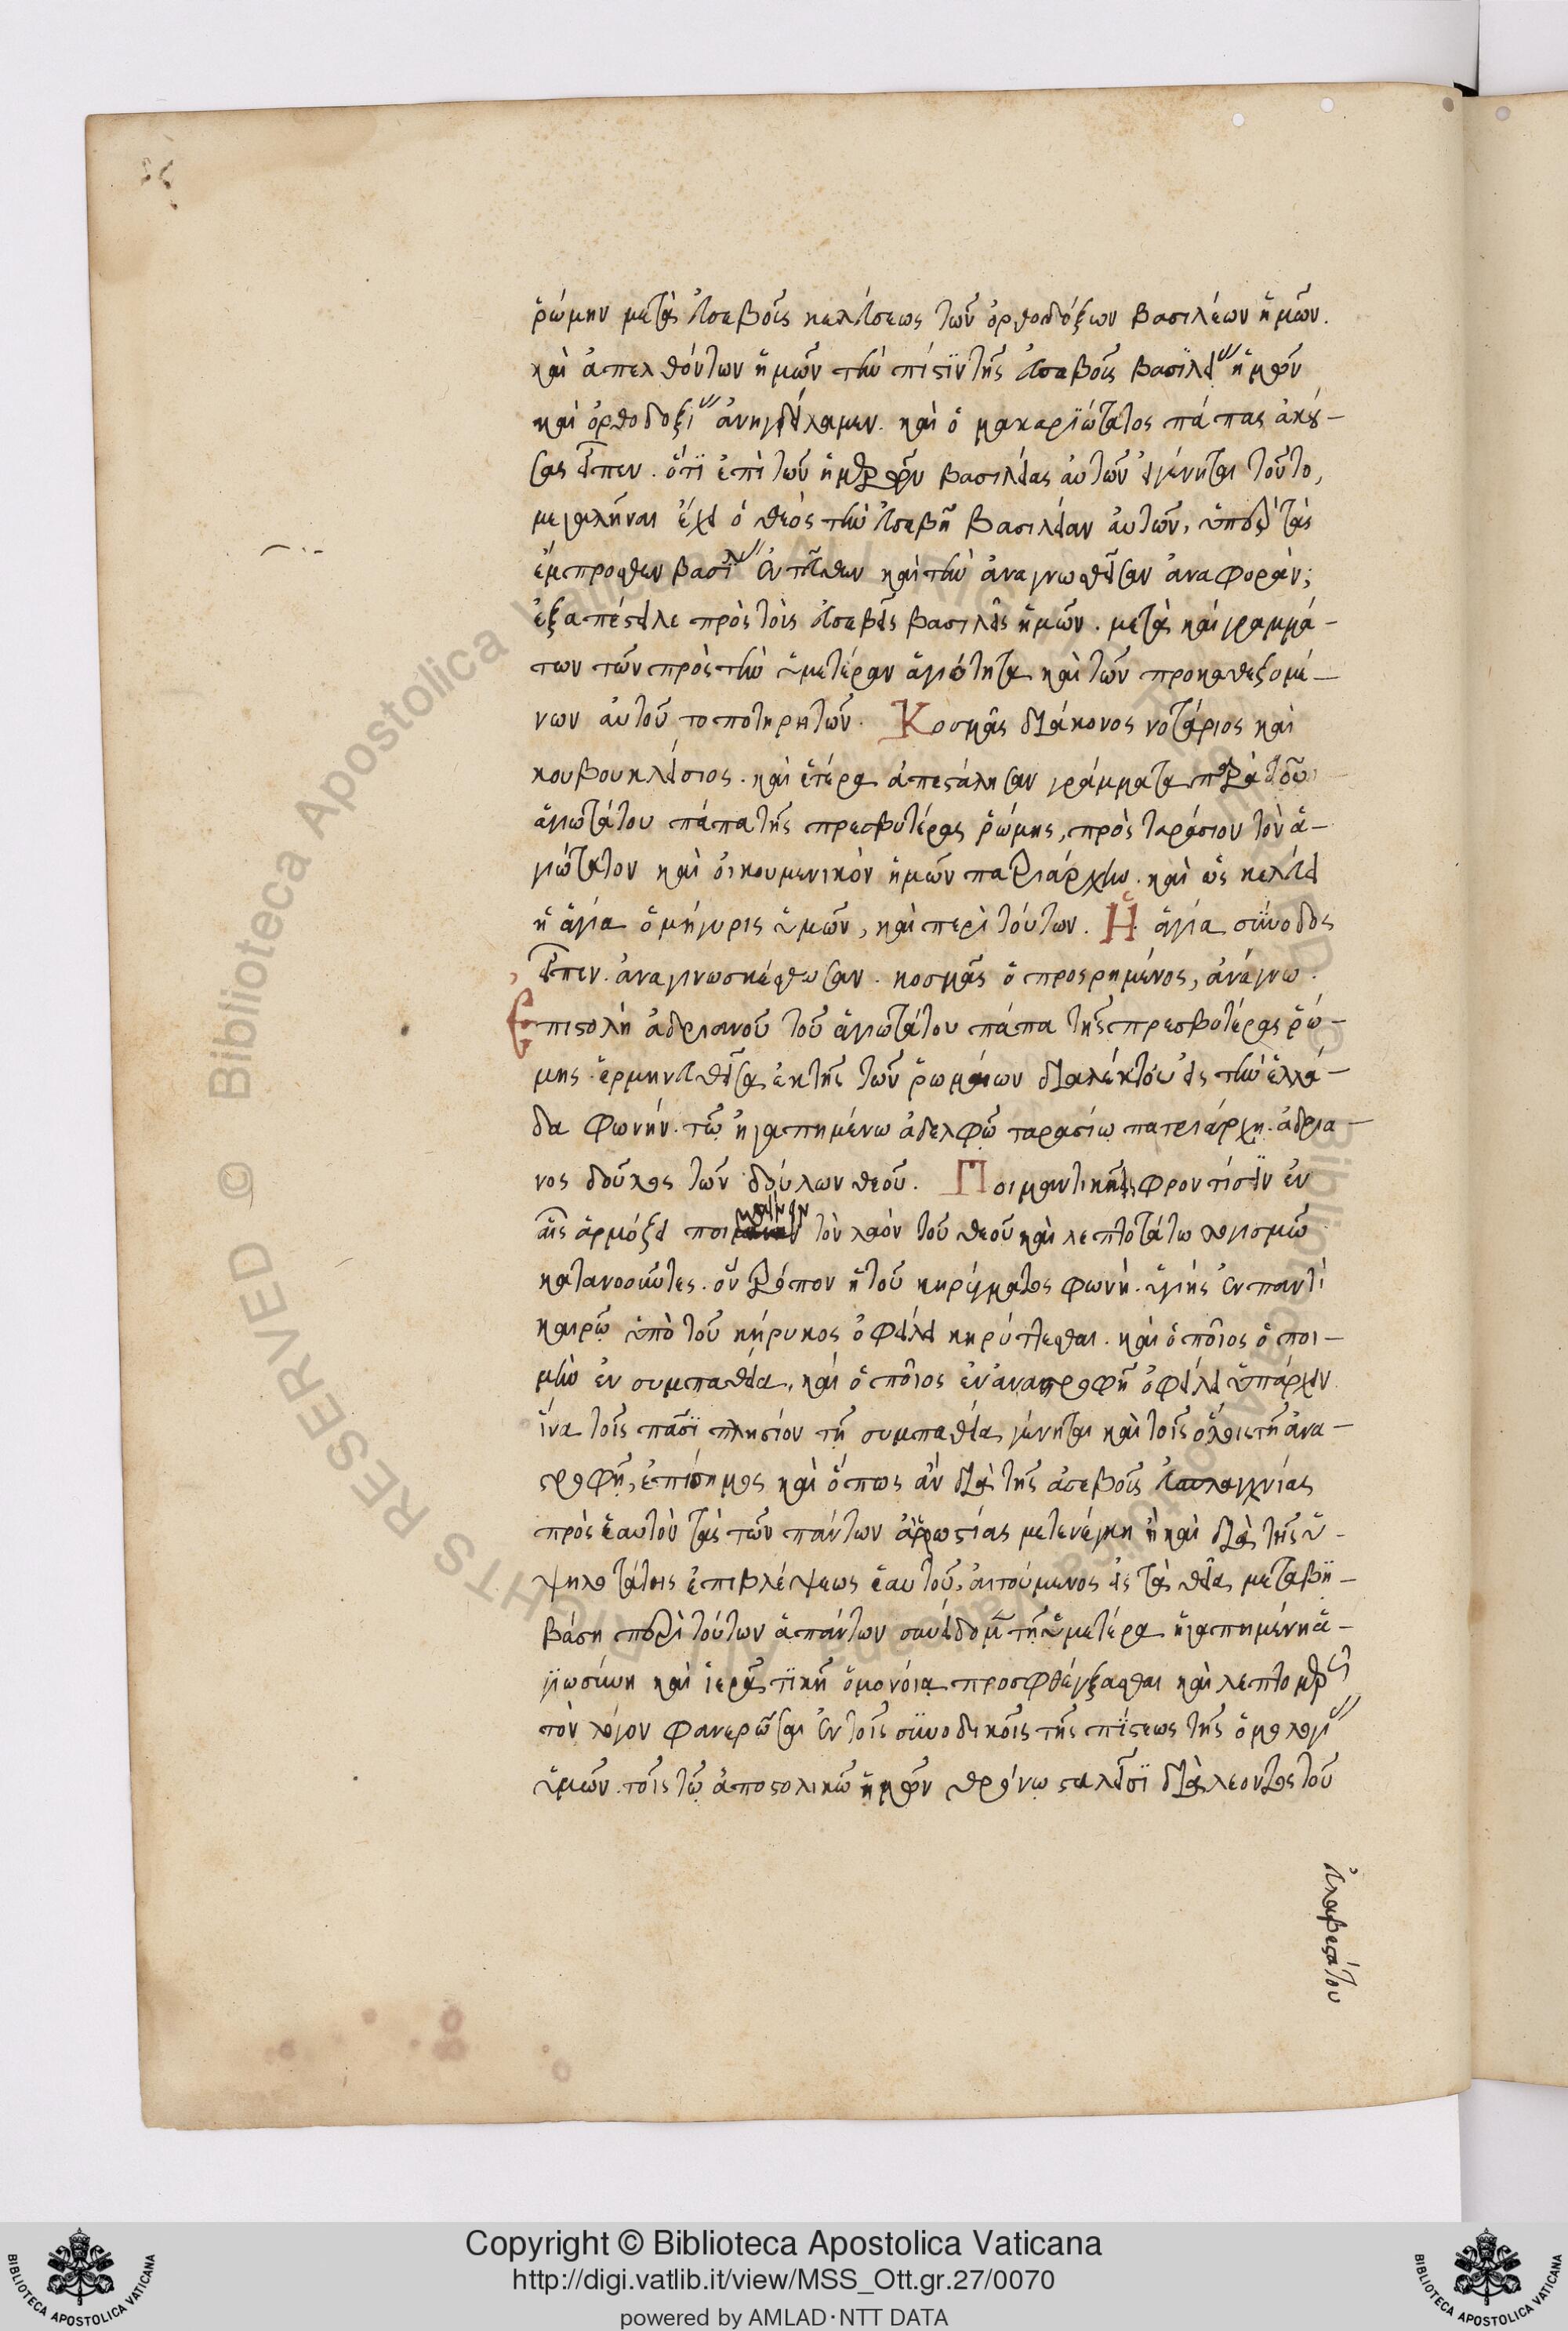 ῥώμην μετὰ εὐσεβοῦς κελεύσεως τῶν ὀρθοδόξων βασιλέων ἡμῶν.
καὶ ἀπελθόντων ἡμῶν τὴν πίστιν τῆς εὐσεβοῦς βασιλεί ἡμῶν
καὶ ὀρθοδοξί ἀνηγγείλαμεν. καὶ ὁ μακαριώτατος πάπας ἀκού–
σας εἶπεν. ὅτι ἐπὶ τῶν ἡμερῶν βασιλείας αὐτῶν εἰ γένηται τοῦτο,
μεγαλῦναι ἔχει ὁ θεὸς τὴν εὐσεβῆ βασιλείαν αὐτῶν, ὑπὲρ τὰς
ἔμπροσθεν βασιλ ἐντεῦθεν καὶ τὴν ἀναγνωσθεῖσαν ἀναφοράν;
ἐξαπέστειλε πρὸς τοὺς εὐσεβεῖς βασιλεῖς ἡμῶν. μετὰ καὶ γραμμά–
των τῶν πρὸς τὴν ὑμετέραν ἁγιότητα καὶ τῶν προκαθεζομέ–
νων αὐτοῦ τοποτηρητῶν. Κοσμᾶς διάκονος νοτάριος καὶ
κουβουκλείσιος. καὶ ἕτερα ἀπεστάλησαν γράμματα παρὰ τοῦ
ἁγιωτάτου πάπα τῆς πρεσβυτέρας ῥώμης, πρὸς ταράσιον τὸν ἁ–
γιώτατον καὶ οἰκουμενικὸν ἡμῶν πατριάρχην. καὶ ὡς κελεύει
ἡ ἁγία ὁμήγυρις ὑμῶν, καὶ περὶ τούτων. Ἡ ἁγία σύνοδος
εἶπεν. ἀναγινωσκέσθωσαν. κοσμᾶς ὁ προσρημένος, ἀνέγνω.
Ἐπιστολὴ ἀδριανοῦ τοῦ ἁγιωτάτου πάπα τῆς πρεσβυτέρας ῥώ–
μης. ἑρμηνευθεῖσα ἐκ τῆς τῶν ῥωμαίων διαλέκτου εἰς τὴν ἑλλά–
δα φωνήν. τῷ ἠγαπημένω ἀδελφῷ ταρασίῳ πατριάρχῃ. ἀδρια–
νος δοῦλος τῶν δούλων θεοῦ. Ποιμαντικῆς φροντίσιν ἐν
αἷς ἁρμόζει ποιμαίνειν τὸν λαὸν τοῦ θεοῦ καὶ λεπτοτάτω λογισμῶ
κατανοοῦντες. ὃν τρόπον ἡ τοῦ κηρύγματος φωνὴ. ὑγιὴς ἐν παντὶ
καιρῷ ὑπὸ τοῦ κήρυκος ὀφείλει κηρύττεσθαι. καὶ ὁποῖος ὁ ποι–
μὴν ἐν συμπαθεία, καὶ ὁποῖος ἐν ἀναστροφῇ ὀφείλει ὑπάρχειν
ἵνα τοῖς πᾶσι πλησίον τῇ συμπαθεία γένηται καὶ τοῖς ὅλοις τῇ ἀνα–
στροφῇ, ἐπίσημος καὶ ὅπως ἂν διὰ τῆς εὐσεβοῦς εὐσπλαγχνίας
πρὸς ἑαυτὸν τὰς τῶν πάντων ἀρρωστίας μετενέγκη ἢ καὶ διὰ τῆς ὑ–
ψηλοτάτης ἐπιβλέψεως ἑαυτοῦ, αἰτούμενος εἰς τὰ θεῖα μεταβι–
βάση περὶ τούτων ἁπάντων σπεύδομεν τῇ ὑμετέρα ἠγαπημένη ἁ–
γιωσύνη καὶ ἱερατικῇ ὁμονοία προσφθέγξασθαι καὶ λεπτομερῶς
τὸν λόγον φανερῶσαι ἐν τοῖς συνοδικοῖς τῆς πίστεως τῆς ὁμολογί
ὑμῶν. τοῖς τῷ ἀποστολικῷ ἡμῶν θρόνω σταλεῖσι διὰ λεοντος τοῦ
εὐλαβεστάτου
Copyright © Biblioteca Apostolica Vaticana
http://digi.vatlib.it/view/MSS_Ott.gr.27/0070
powered by AMLAD·NTT DATA